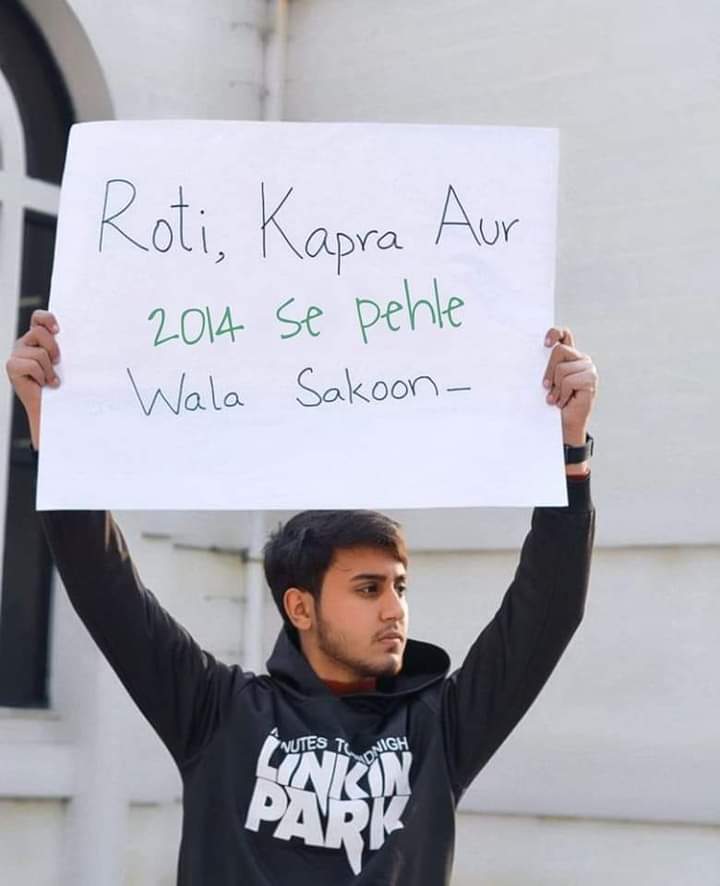 Roti, Kapra Aur
2014 se pehle
Wala Sakoon-
NUTES TO MIDNIGH
LINKIN
PARK